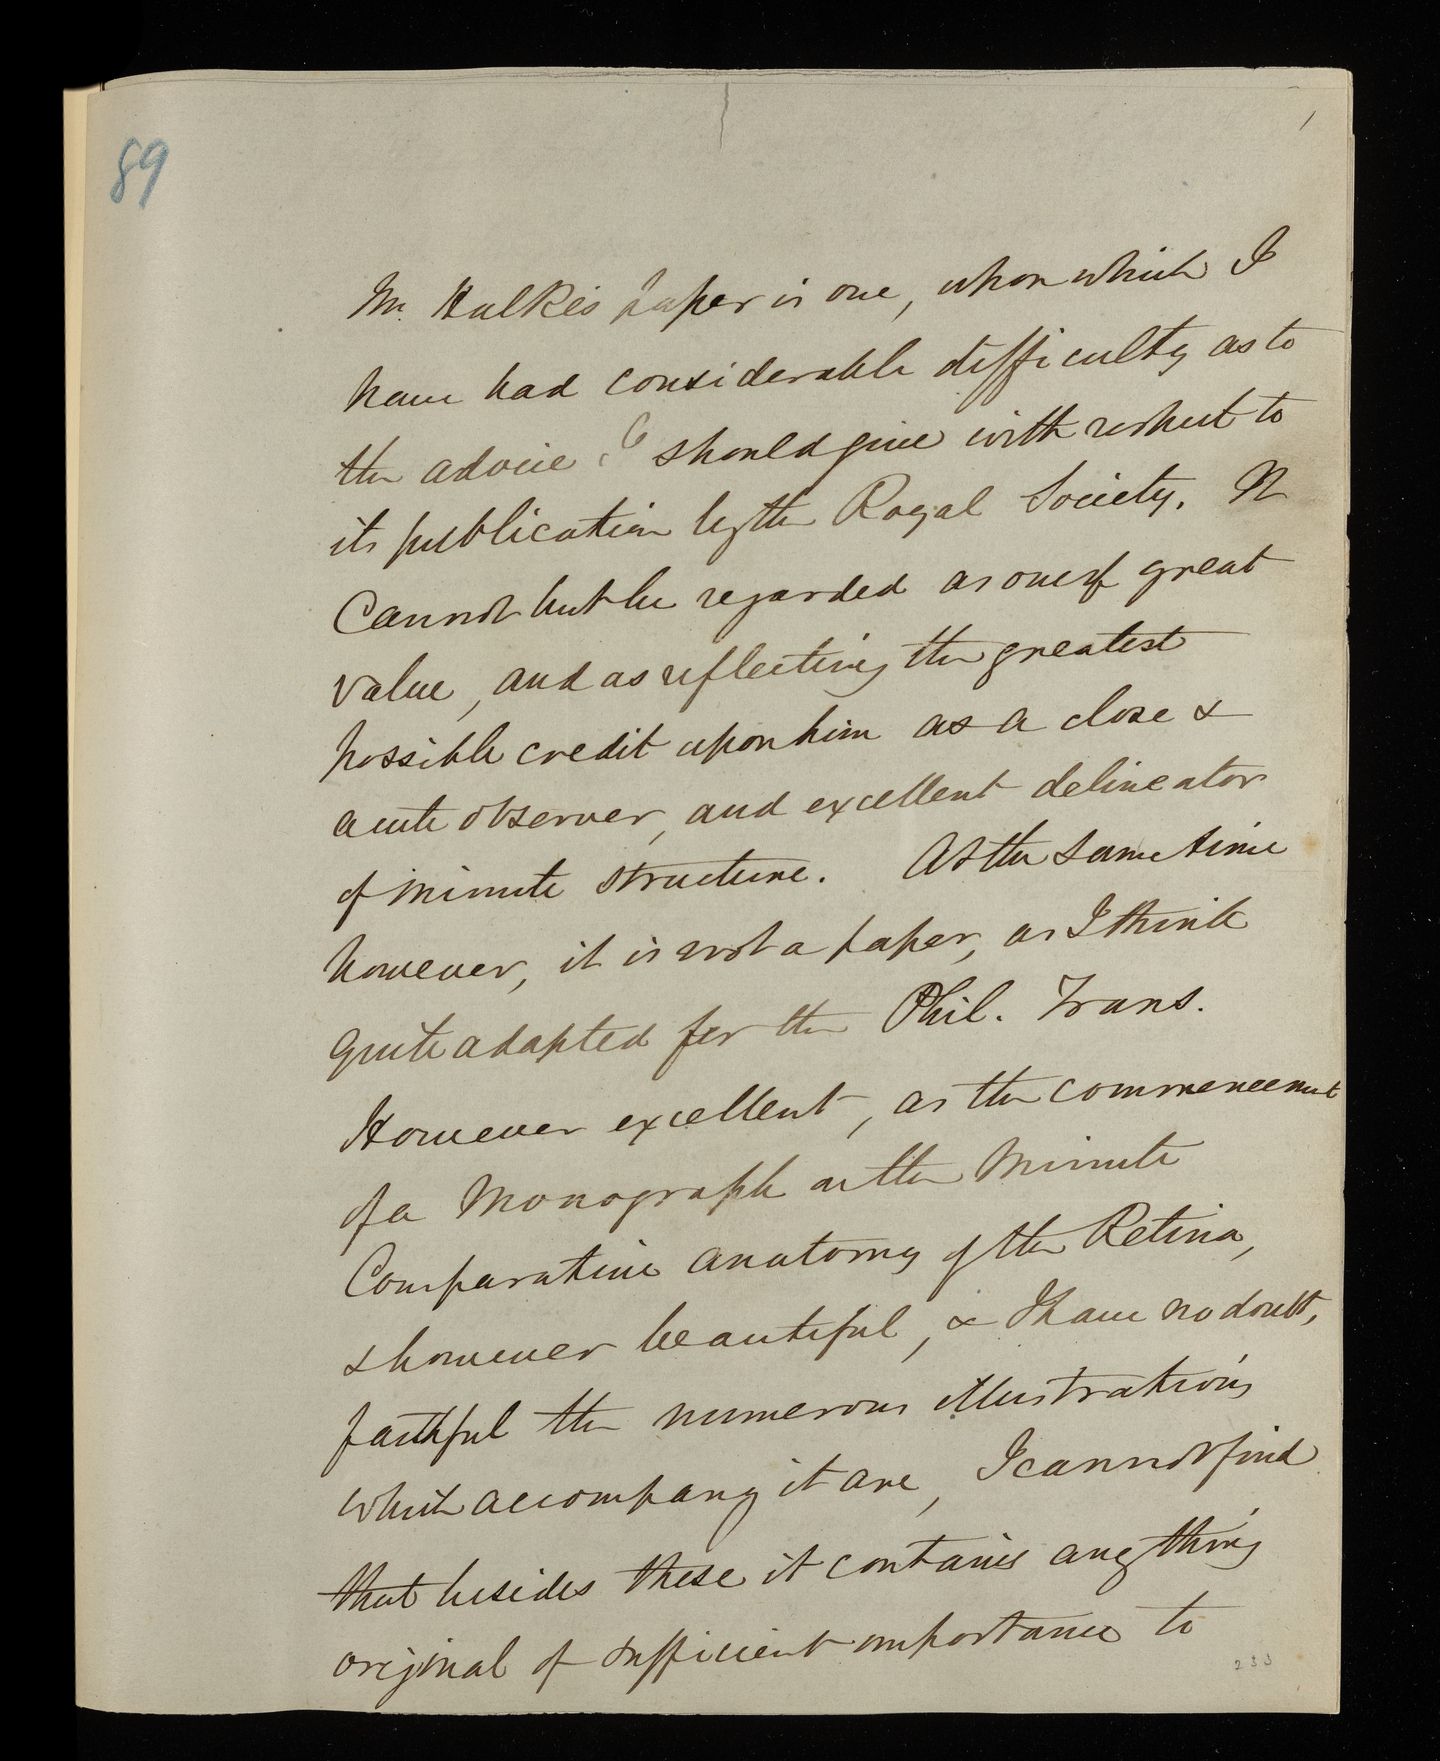 89
Mr. Hulke's paper is one, upon which I
have had considerable difficulty as to
the advice I should give with respect to
its publication by the Royal Society. It
Cannot but be regarded as one of great
value, and as reflecting the greatest
possible credit upon him as a close &
acute observer, and excellent delineator
of minute structure. At the same time
however, it is not a paper, as I think
quite adapted for the Phil. Trans.
However excellent, as the commencement
of a Monograph on the Minute
Comparative anatomy of the Retina,
& however beautiful, & I have no doubt,
faithful the numerous illustrations
which accompany it are, I cannot find
that besides these it contains any thing
original of sufficient importance to
233